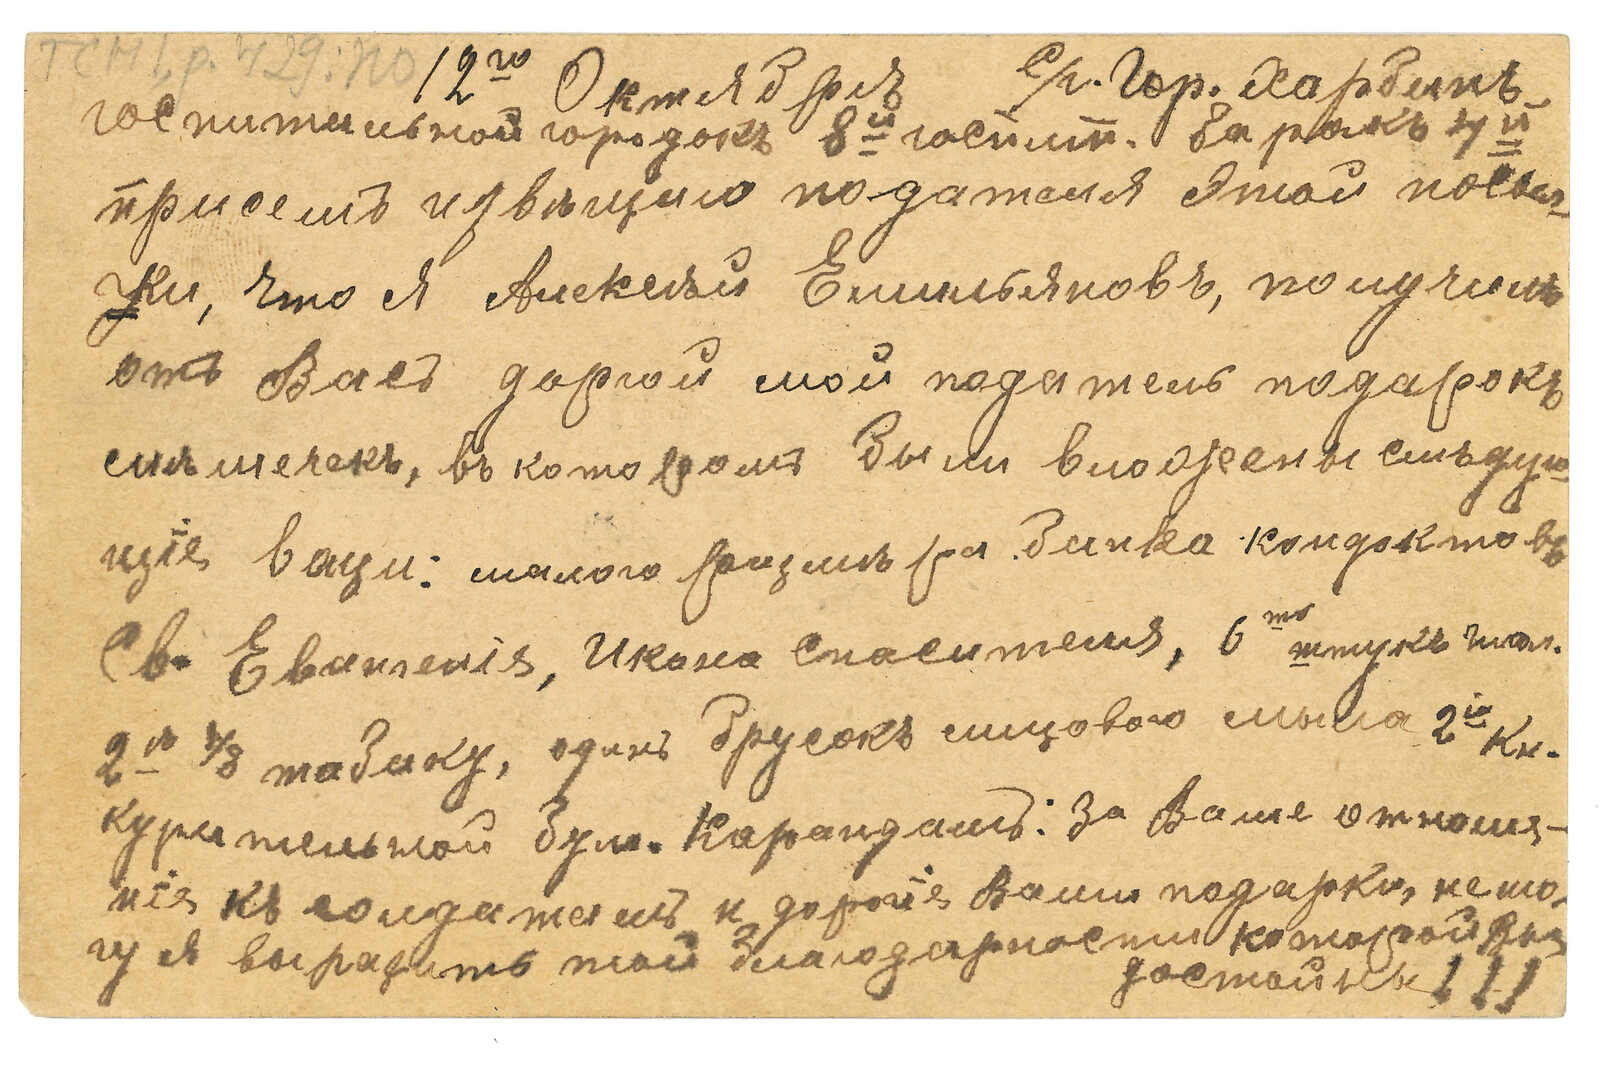 12го Октября с/г. Гор. Харбинъ
госпитальной городокъ 8й госпит. баракъ 4й
присемъ извѣщаю подателя этой посыл-
ки, что я Алексѣй Емильяновъ, получилъ
отъ Васъ доргой мой податель подарокъ
си мечекъ, въ которомъ были вложены слѣдую-
щіе ващи: малого размѣра банка
Св. Евангеліе, Икона Спасителя, 6ть штукъ
2ѣ 1/8 табаку, одинъ брусокъ лицового мыла 2ю кн.
курительной бум. Карандашъ: За Ваше отноше-
ніе къ солдатамъ и дорогіе Ваши подарки, немо-
гу я выразить той благодарности которой Вы
достойны!!!